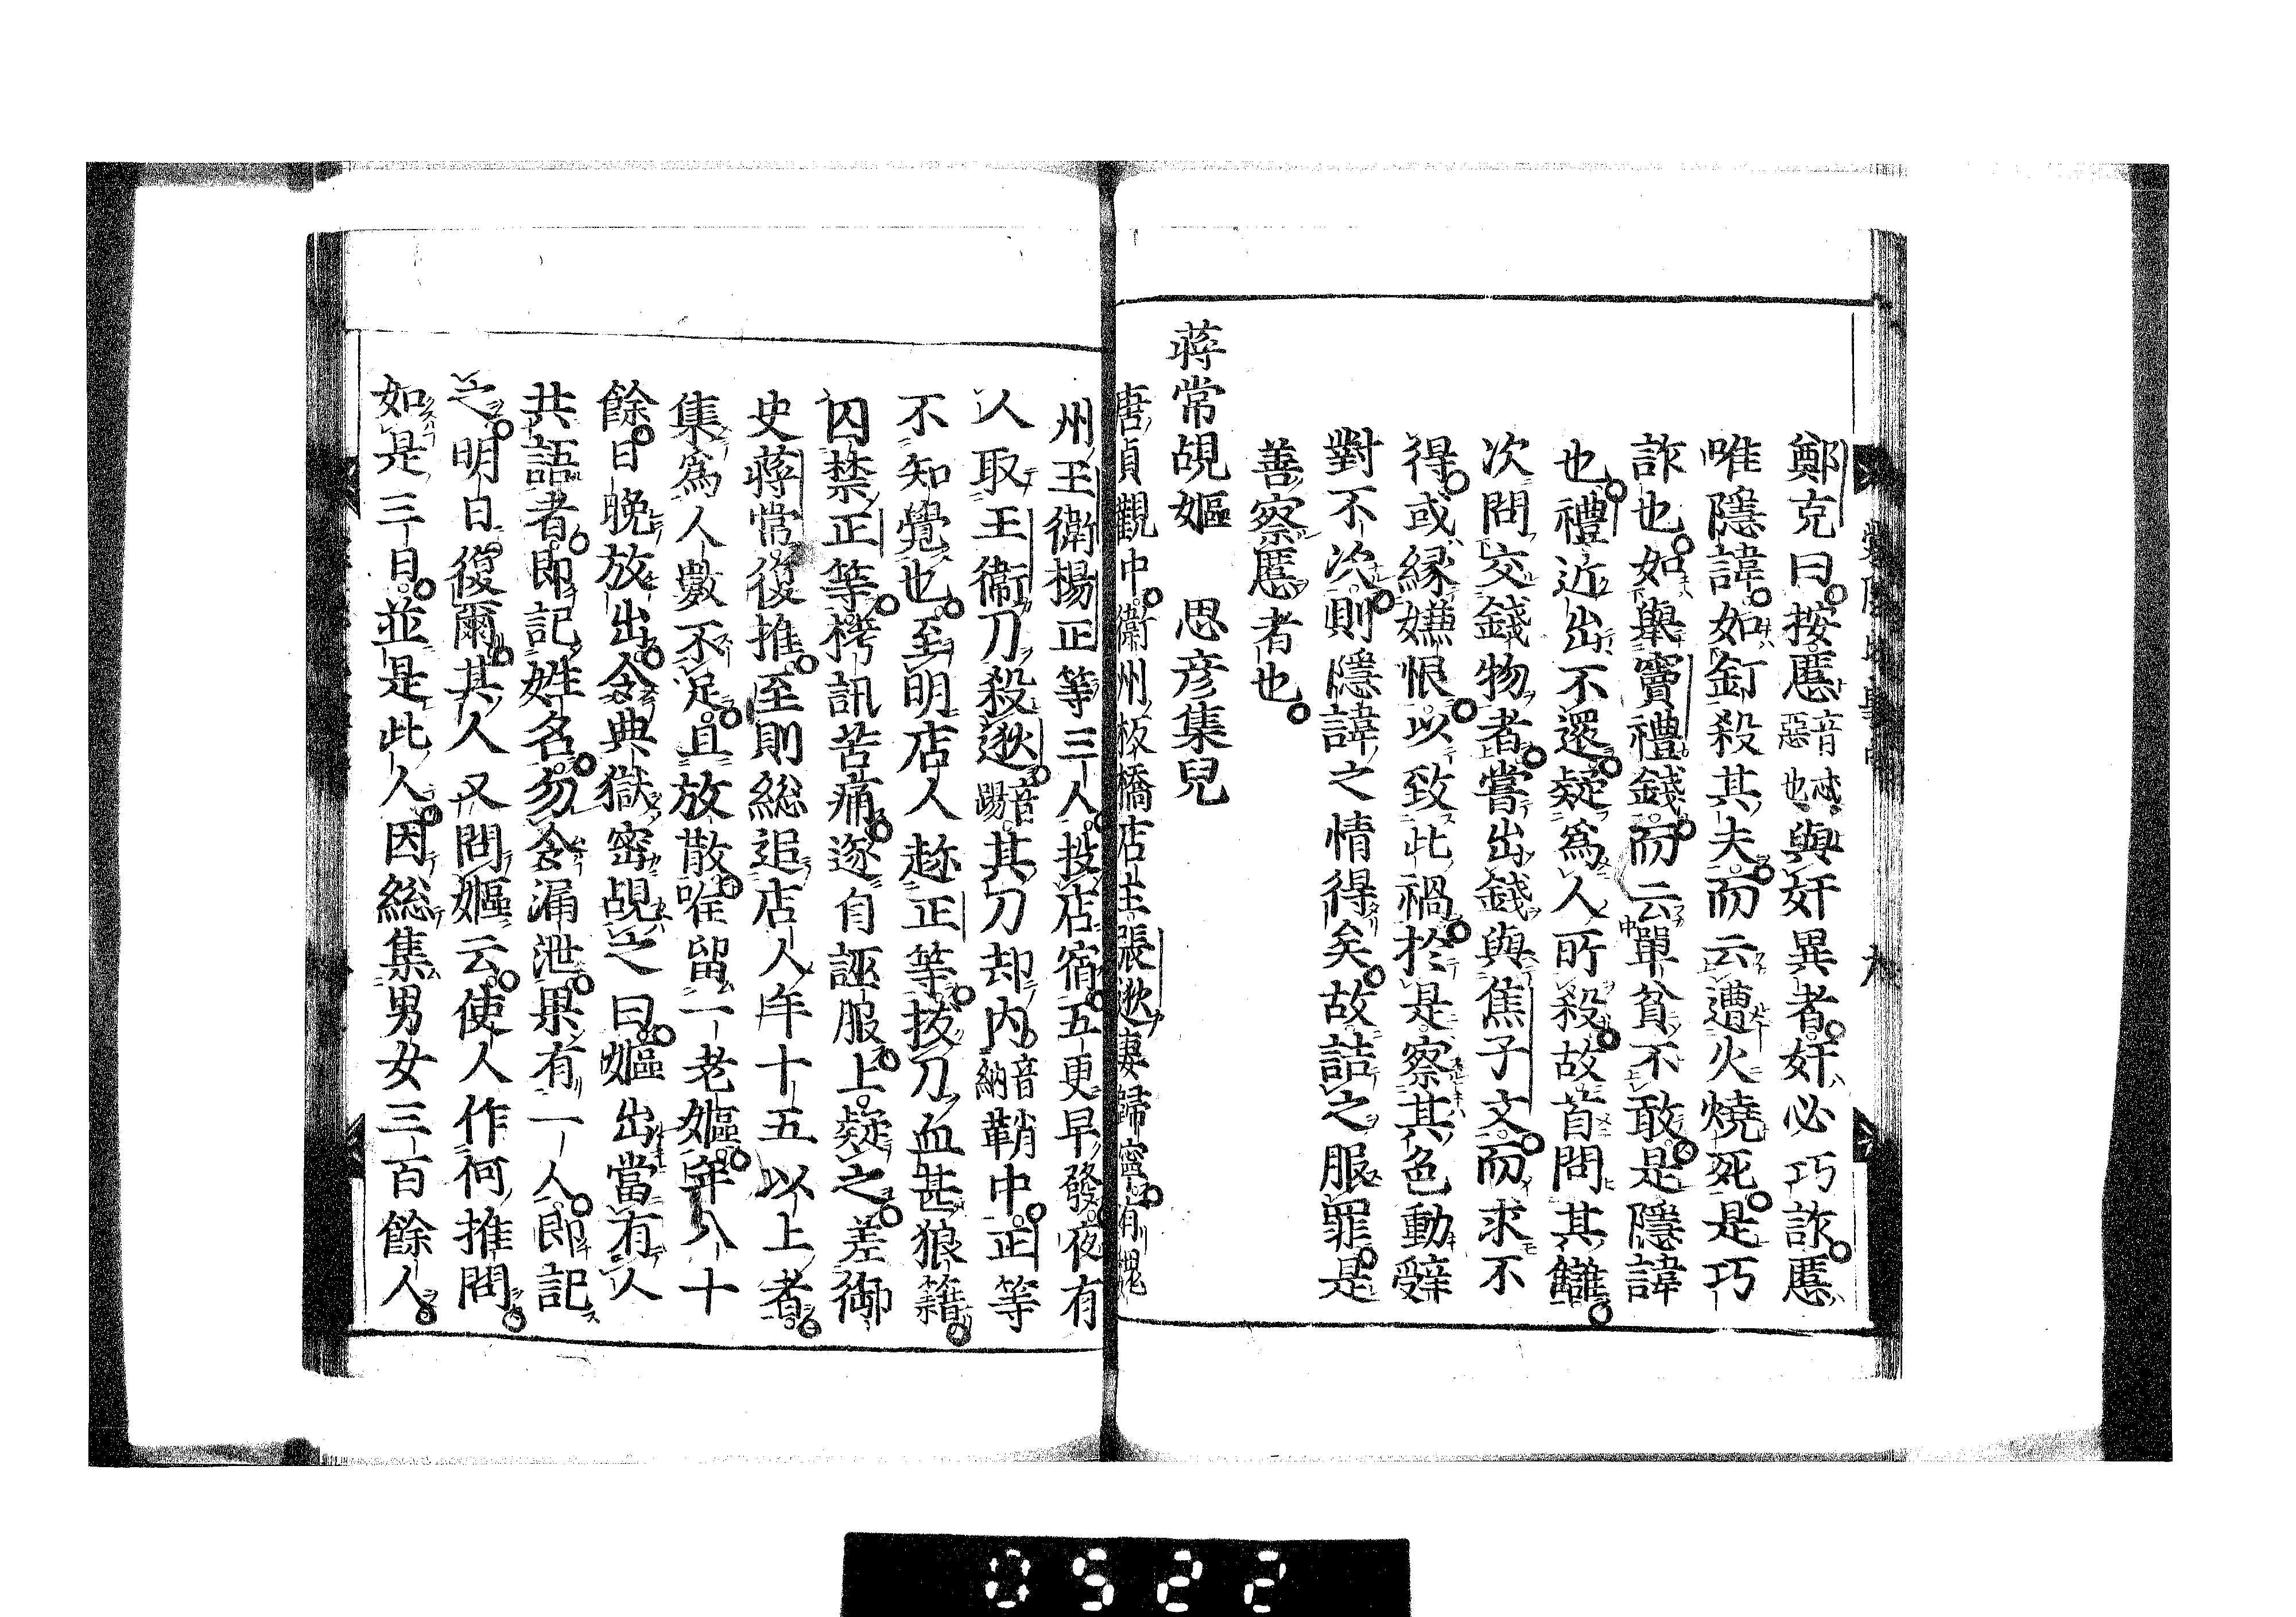 鄭克曰按慝音忒惡也與奸異者奸必巧詐慝
唯隱諱如釘殺其夫而云遭火燒死是巧
詐也如與竇禮錢而云單貧不敢是隱諱
也禮近出不還疑爲人所殺故首問其讎
次問交錢物者嘗出錢與焦子文而求不
得或縁嫌恨以致此禍於是察其色動辭
對不次則隱諱之情得矣故詰之服罪是
善察慝者也
蔣常覘嫗 思彦集兒
唐貞觀中衛州板橋店主張逖妻歸寧有魏
州王衛楊正等三人投店宿五更早發夜有
人取王衛刀殺逖音踢其刀却内音納鞘中正等
不知覺也至明店人趂正等拔刀血甚狼籍
囚禁正等拷訊苦痛遂自誣服上疑之差御
史蔣常復推至則総追店人年十五以上者
集爲人數不足且放散唯留一老嫗年八十
餘日晚放出令典獄密覘之曰嫗出當有人
共語者即記姓名勿令漏泄果有一人即記
之明日復爾其人又問嫗云使人作何推問
如是三日並是此人因総集男女三百餘人
九
0522